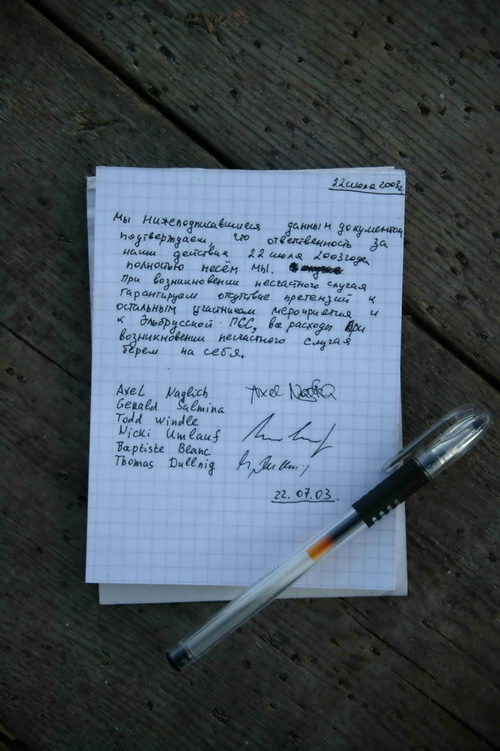 22 июля 2003г.
Мы нижеподписавшиеся данным документом
подтверждаем, что ответственность за
наши действия 22 июля 2003года
полностью несём мы.
При возникновении несчастного случая
гарантируем отсутствие претензий к
остальным участникам мероприятия и
к Эльбрусской ПСС, все расходы при
возникновении несчастного случая
берем на себя.
Axel Naglich Axel Naglich
Gerald Salmina
Todd Windle
Nicki Umlauf
Baptiste Blanc
Thomas Dullnig
22.07.03.